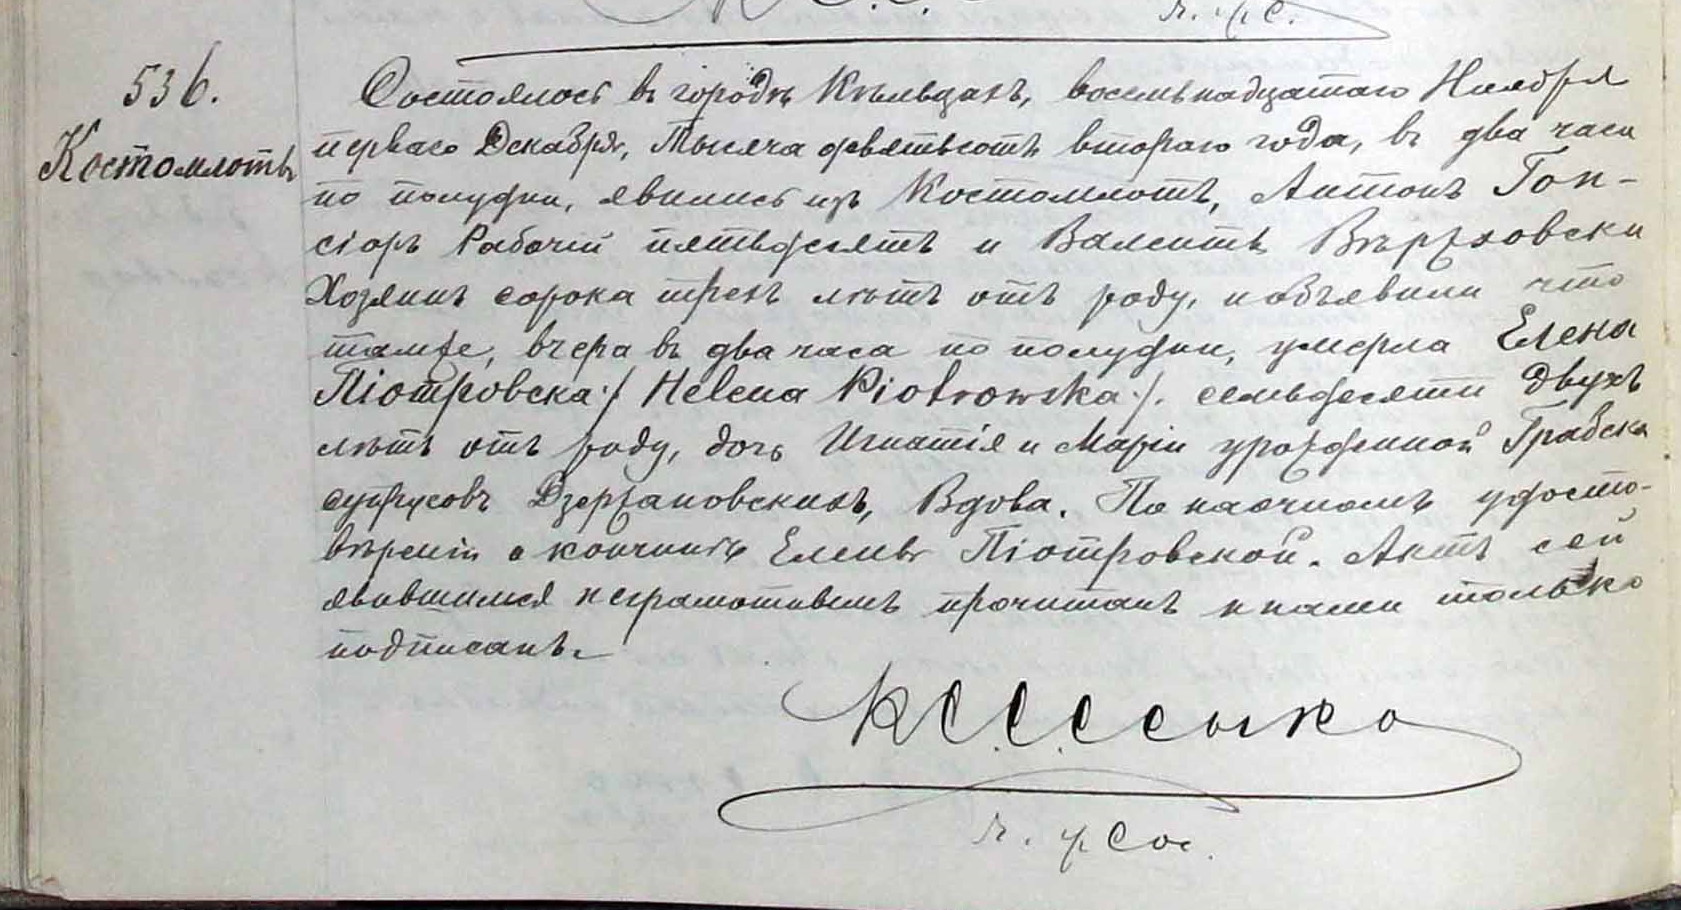 536.
Костомлоты
Состоялось въ городѣ Кѣльцахъ, восемьнадцатаго Ноября
перваго Декабря, Тысяча девятьсотъ втораго года, въ два часа
по полудни, явились изъ Костомлотъ, Антонъ Гон-
сіоръ Рабочій пятьдесятъ и Валентъ Вѣрховски
Хозяинъ сорока трехъ лѣтъ отъ роду, и объявили что
тамже, вчера въ два часа по полудни, умерла Елена
Піотровска ·/ Helena Piotrowska ·/. семьдесяти двухъ
лѣтъ отъ роду, дочь Игнатія и Маріи урожденной Грабска
супруговъ Дзержановскихъ, Вдова. По наочномъ удосто-
вѣреніи о кончинѣ Елены Піотровской. Актъ сей
явившимся неграмотнымъ прочитанъ и нами только
подписанъ.